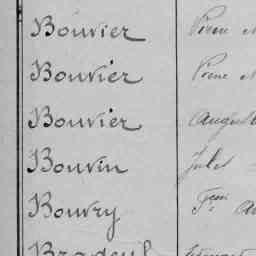 Bouvier Pierre
Bouvier Pierre
Bouvier
Bouvin Jules
Bouvry